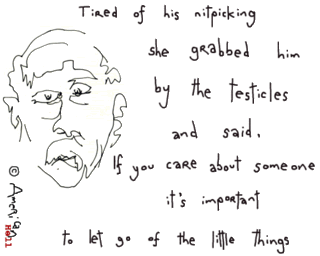 Tired of his nitpicking
she grabbed him
by the testicles
and said.
If you care about someone
it's important
to let go of the little things
© American
H011